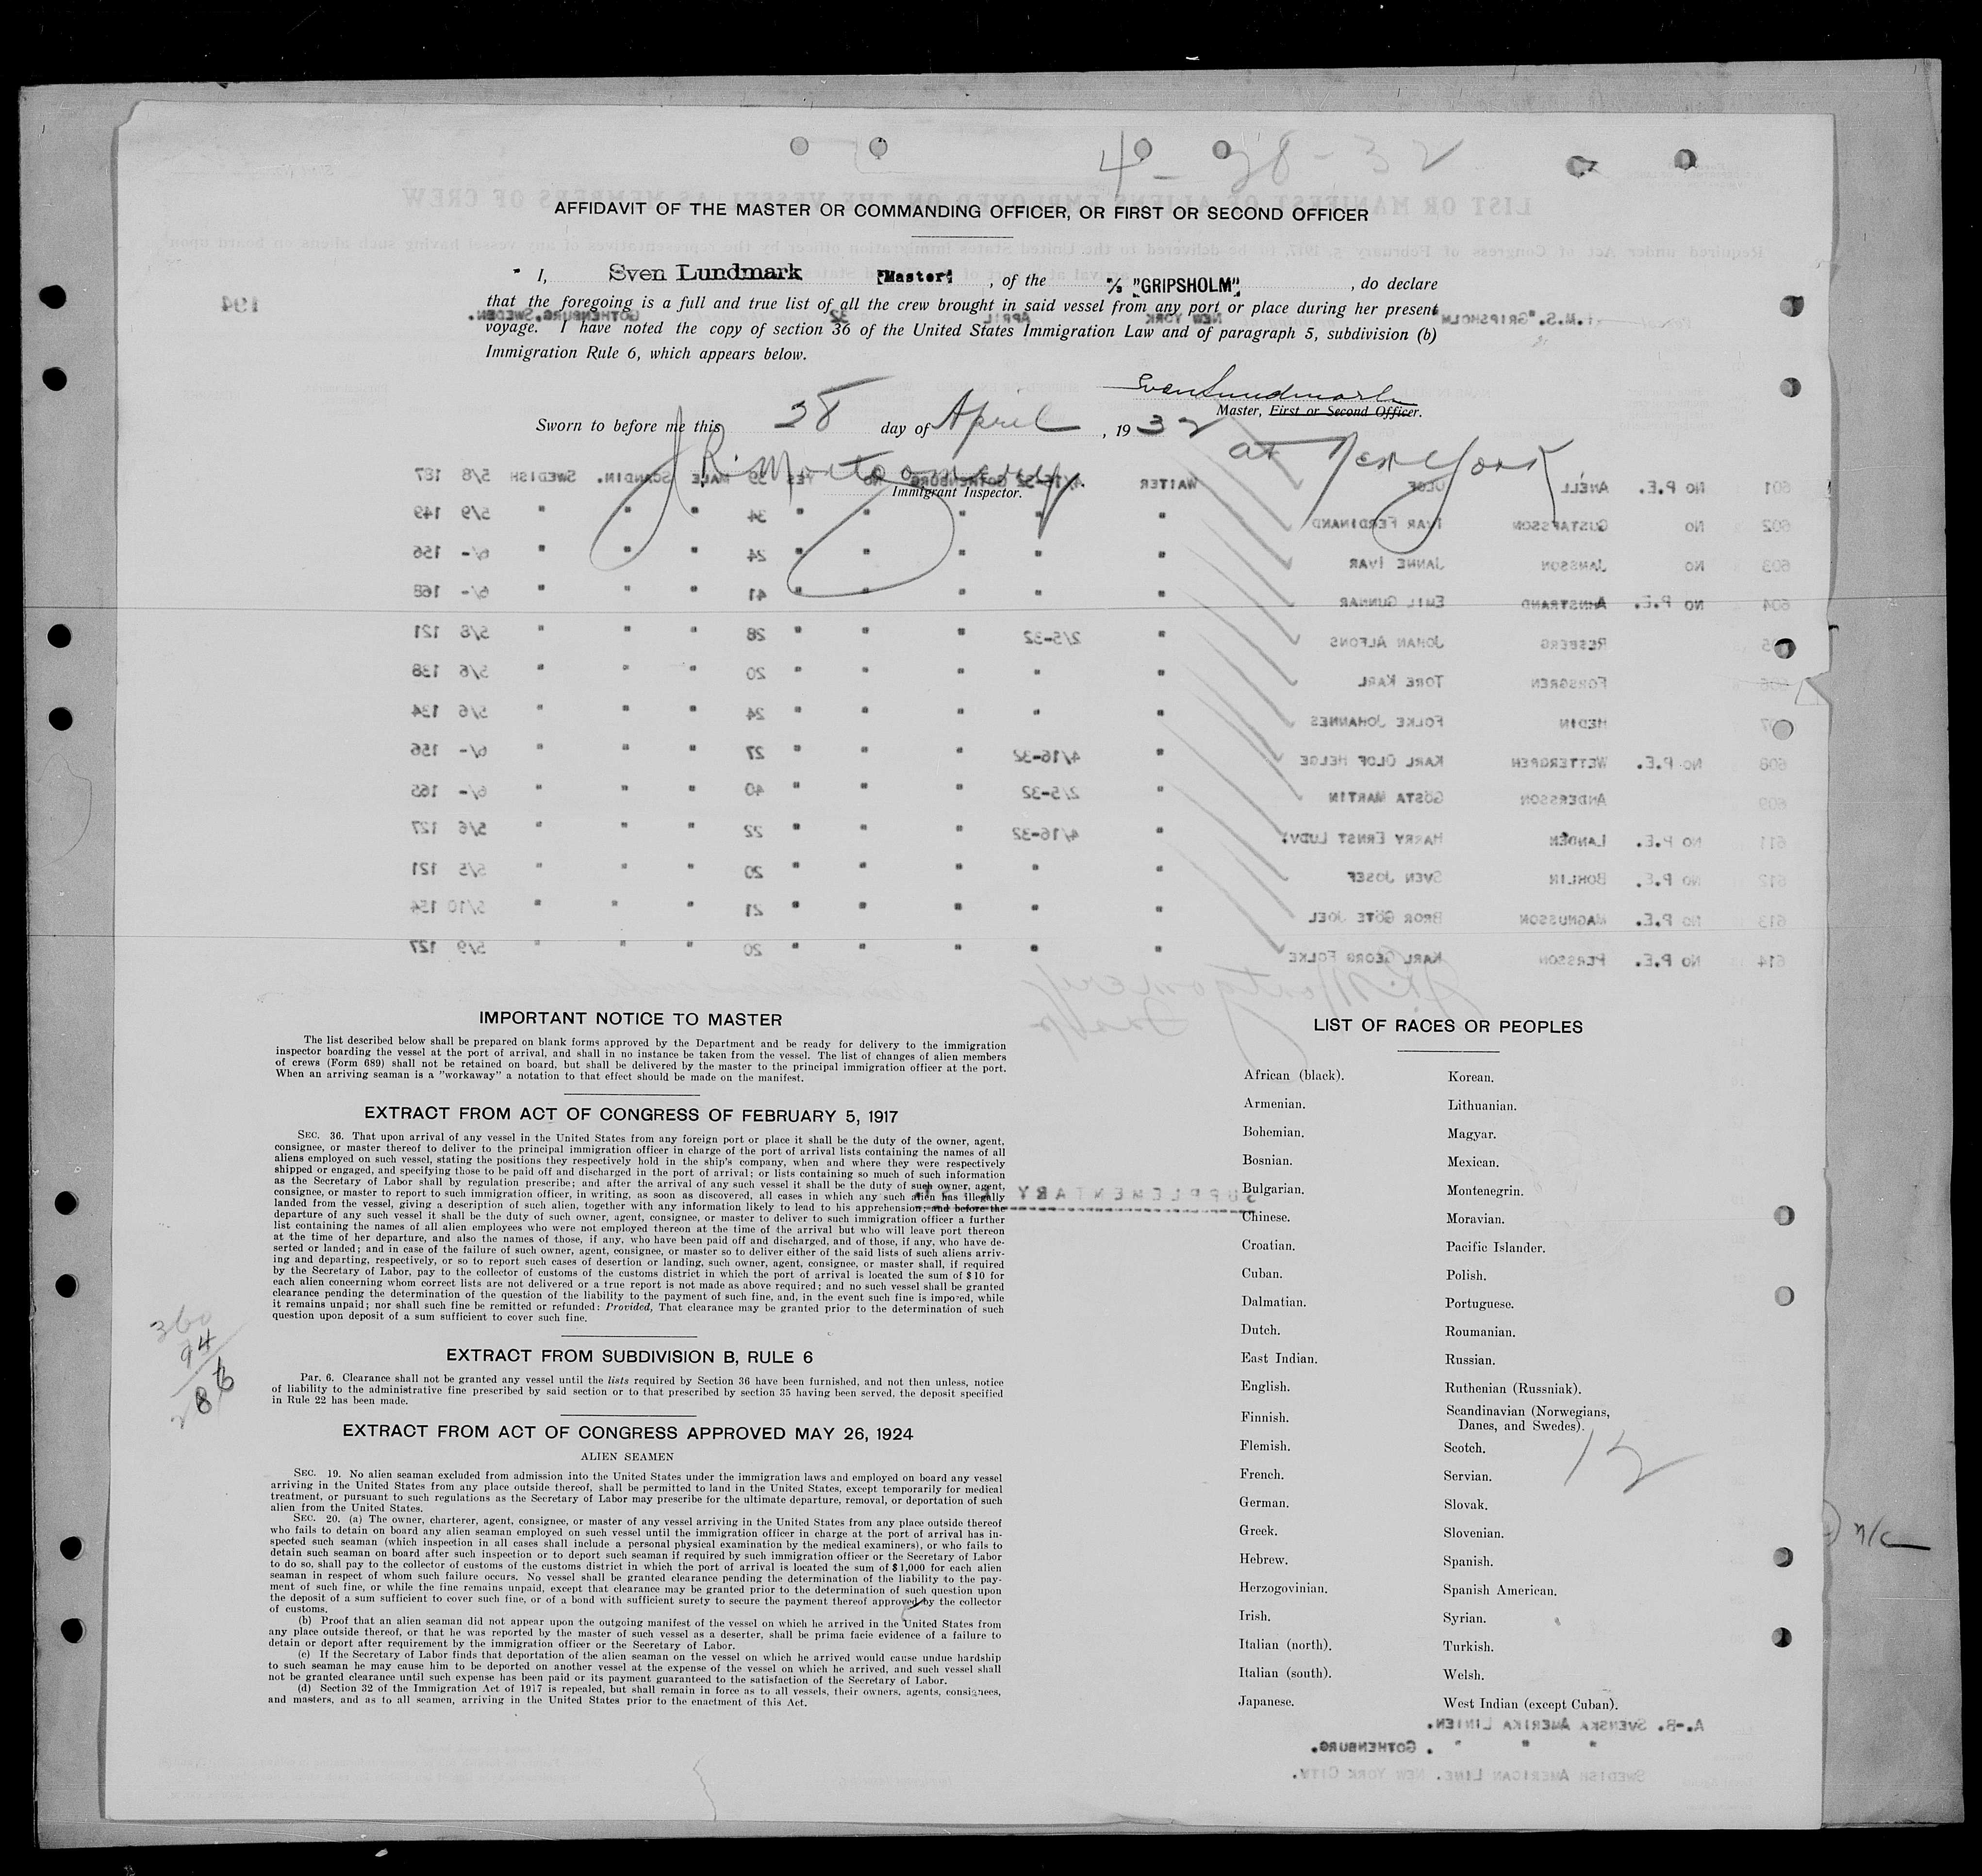 4-28-32
AFFIDAVIT OF THE MASTER OR COMMANDING OFFICER, OR FIRST OR SECOND OFFICER
I, Sven Lundmark [Master], of the M/S "GRIPSHOLM", do declare
that the foregoing is a full and true list of all the crew brought in said vessel from any port or place during her present
voyage. I have noted the copy of section 36 of the United States Immigration Law and of paragraph 5, subdivision (b)
Immigration Rule 6, which appears below.
Sven Lundmark
Master, First or Second Officer.
Sworn to before me this 28 day of April, 1932
at New York
J R Montgomery
Immigrant Inspector.
194
GOTHENBURG, SWEDEN.
32
APRIL
NEW YORK
M.S. "GRIPSHOLM
601 No P.E. ANELL OLOF WAITER 4/16-32 GOTHENBURG No YES 39 MALE SCANDIN. SWEDISH 5/8 187
602 No GUSTAFSSON IVAR FERDINAND " " " " " 34 " " " 5/9 149
603 No JANSSON JANNE IVAR " " " " " 24 " " " 6/- 156
604 No P.E. AHNSTRAND EMIL GUNNAR " " " " " 41 " " " 6/- 168
RESBERG JOHAN ALFONS " 2/5-32 " " " 28 " " " 5/8 121
FORSGREN TORE KARL " " " " " 20 " " " 5/6 138
HEDIN FOLKE JOHANNES " " " " " 24 " " " 5/6 134
608 No P.E. WETTERGREN KARL OLOF HELGE " 4/16-32 " " " 27 " " " 6/- 156
609 ANDERSSON GÖSTA MARTIN " 2/5-32 " " " 40 " " " 6/- 165
611 No P.E. LANDÉN HARRY ERNST LUDVI. " 4/16-32 " " " 22 " " " 5/6 127
612 No P.E. BOHLIN SVEN JOSEF " " " " " 20 " " " 5/5 121
613 No P.E. MAGNUSSON BROR GÖTE JOEL " " " " " 21 " " " 5/10 154
614 No P.E. PERSSON KARL GEORG FOLKE " " " " " 20 " " " 5/9 127
J R Montgomery
Insp
IMPORTANT NOTICE TO MASTER
The list described below shall be prepared on blank forms approved by the Department and be ready for delivery to the immigration
inspector boarding the vessel at the port of arrival, and shall in no instance be taken from the vessel. The list of changes of alien members
of crews (Form 689) shall not be retained on board, but shall be delivered by the master to the principal immigration officer at the port.
When an arriving seaman is a "workaway" a notation to that effect should be made on the manifest.
EXTRACT FROM ACT OF CONGRESS OF FEBRUARY 5, 1917
SEC. 36. That upon arrival of any vessel in the United States from any foreign port or place it shall be the duty of the owner, agent,
consignee, or master thereof to deliver to the principal immigration officer in charge of the port of arrival lists containing the names of all
aliens employed on such vessel, stating the positions they respectively hold in the ship's company, when and where they were respectively
shipped or engaged, and specifying those to be paid off and discharged in the port of arrival; or lists containing so much of such information
as the Secretary of Labor shall by regulation prescribe; and after the arrival of any such vessel it shall be the duty of such owner, agent,
consignee, or master to report to such immigration officer, in writing, as soon as discovered, all cases in which any such alien has illegally
landed from the vessel, giving a description of such alien, together with any information likely to lead to his apprehension; and before the
departure of any such vessel it shall be the duty of such owner, agent, consignee, or master to deliver to such immigration officer a further
list containing the names of all alien employees who were not employed thereon at the time of the arrival but who will leave port thereon
at the time of her departure, and also the names of those, if any, who have been paid off and discharged, and of those, if any, who have de-
serted or landed; and in case of the failure of such owner, agent, consignee, or master so to deliver either of the said lists of such aliens arriv-
ing and departing, respectively, or so to report such cases of desertion or landing, such owner, agent, consignee, or master shall, if required
by the Secretary of Labor, pay to the collector of customs of the customs district in which the port of arrival is located the sum of $10 for
each alien concerning whom correct lists are not delivered or a true report is not made as above required; and no such vessel shall be granted
clearance pending the determination of the question of the liability to the payment of such fine, and, in the event such fine is imposed, while
it remains unpaid; nor shall such fine be remitted or refunded: Provided, That clearance may be granted prior to the determination of such
question upon deposit of a sum sufficient to cover such fine.
SUPPLEMENTARY
360
94
286
EXTRACT FROM SUBDIVISION B, RULE 6
Par. 6. Clearance shall not be granted any vessel until the lists required by Section 36 have been furnished, and not then unless, notice
of liability to the administrative fine prescribed by said section or to that prescribed by section 35 having been served, the deposit specified
in Rule 22 has been made.
EXTRACT FROM ACT OF CONGRESS APPROVED MAY 26, 1924
ALIEN SEAMEN
SEC. 19. No alien seaman excluded from admission into the United States under the immigration laws and employed on board any vessel
arriving in the United States from any place outside thereof, shall be permitted to land in the United States, except temporarily for medical
treatment, or pursuant to such regulations as the Secretary of Labor may prescribe for the ultimate departure, removal, or deportation of such
alien from the United States.
SEC. 20. (a) The owner, charterer, agent, consignee, or master of any vessel arriving in the United States from any place outside thereof
who fails to detain on board any alien seaman employed on such vessel until the immigration officer in charge at the port of arrival has in-
spected such seaman (which inspection in all cases shall include a personal physical examination by the medical examiners), or who fails to
detain such seaman on board after such inspection or to deport such seaman if required by such immigration officer or the Secretary of Labor
to do so, shall pay to the collector of customs of the customs district in which the port of arrival is located the sum of $1,000 for each alien
seaman in respect of whom such failure occurs. No vessel shall be granted clearance pending the determination of the liability to the pay-
ment of such fine, or while the fine remains unpaid, except that clearance may be granted prior to the determination of such question upon
the deposit of a sum sufficient to cover such fine, or of a bond with sufficient surety to secure the payment thereof approved by the collector
of customs.
(b) Proof that an alien seaman did not appear upon the outgoing manifest of the vessel on which he arrived in the United States from
any place outside thereof, or that he was reported by the master of such vessel as a deserter, shall be prima facie evidence of a failure to
detain or deport after requirement by the immigration officer or the Secretary of Labor.
(c) If the Secretary of Labor finds that deportation of the alien seaman on the vessel on which he arrived would cause undue hardship
to such seaman he may cause him to be deported on another vessel at the expense of the vessel on which he arrived, and such vessel shall
not be granted clearance until such expense has been paid or its payment guaranteed to the satisfaction of the Secretary of Labor.
(d) Section 32 of the Immigration Act of 1917 is repealed, but shall remain in force as to all vessels, their owners, agents, consignees,
and masters, and as to all seamen, arriving in the United States prior to the enactment of this Act.
LIST OF RACES OR PEOPLES
African (black).
Armenian.
Bohemian.
Bosnian.
Bulgarian.
Chinese.
Croatian.
Cuban.
Dalmatian.
Dutch.
East Indian.
English.
Finnish.
Flemish.
French.
German.
Greek.
Hebrew.
Herzogovinian.
Irish.
Italian (north).
Italian (south).
Japanese.
Korean.
Lithuanian.
Magyar.
Mexican.
Montenegrin.
Moravian.
Pacific Islander.
Polish.
Portuguese.
Roumanian.
Russian.
Ruthenian (Russniak).
Scandinavian (Norwegians,
Danes, and Swedes).
Scotch.
Servian.
Slovak.
Slovenian.
Spanish.
Spanish American.
Syrian.
Turkish.
Welsh.
West Indian (except Cuban).
12
n/c
A.-B. SVENSKA AMERIKA LINIEN.
" " " . GOTHENBURG.
SWEDISH AMERICAN LINE. NEW YORK CITY.